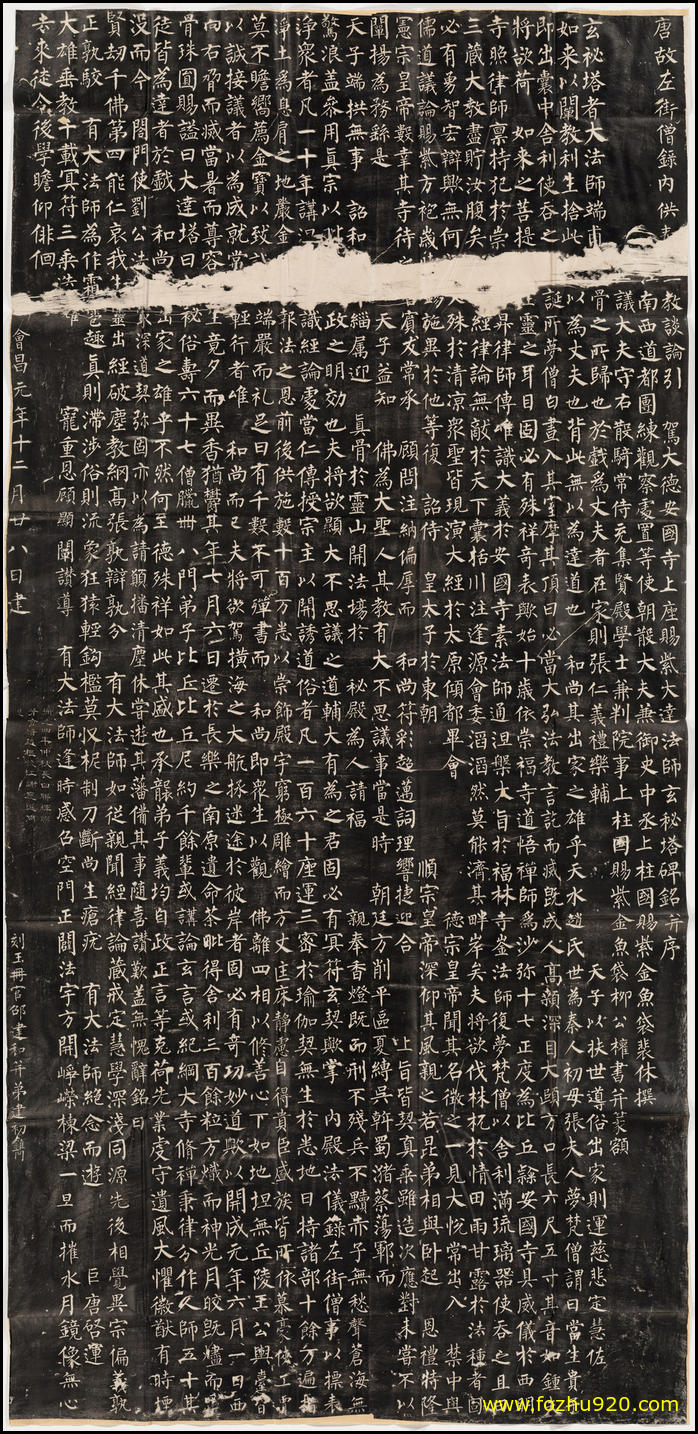 唐故左街僧錄內供奉教談論引駕大德安國寺上座賜紫大達法師玄秘塔碑銘并序
南西道都團練觀察處置等使朝散大夫兼御史中丞上柱國賜紫金魚袋裴休撰
議大夫守右散騎常侍充集賢殿學士兼判院事上柱國賜紫金魚袋柳公權書并篆額
玄秘塔者大法師端甫骨之所歸也於戲為丈夫者在家則張仁義禮樂輔天子以扶世導俗出家則運慈悲定慧佐
如來以闡教利生捨此以為丈夫也背此無以為達道也和尚其出家之雄乎天水趙氏世為秦人初母張夫人夢梵僧謂曰當生貴
即出囊中舍利使吞之誕所夢僧白晝入其室摩其頂曰必當大弘法教言訖而滅既成人高顙深目大頤方口長六尺五寸其音如鍾
將欲荷如來之菩提生靈之耳目固必有殊祥奇表歟始十歲依崇福寺道悟禪師為沙彌十七正度為比丘隸安國寺具威儀於西
寺照律師稟持犯於崇昇律師傳唯識大義於安國寺素法師通涅槃大旨於福林寺崟法師復夢梵僧以舍利滿琉璃器使吞之且
三藏大教盡貯汝腹矣經律論無敵於天下囊括川注逢源會委滔滔然莫能濟其畔岸矣夫將欲伐株杌於情田雨甘露於法種者固
必有勇智宏辯歟無何文殊於清涼眾聖皆現演大經於太原傾都畢會德宗皇帝聞其名徵之一見大悅常出入禁中與
儒道議論賜紫方袍歲時錫施異於他等復詔侍皇太子於東朝順宗皇帝深仰其風親之若昆弟相與臥起恩禮特隆
憲宗皇帝數幸其寺待之若賓友常承顧問注納偏厚而和尚符彩超邁詞理響捷迎合上旨皆契真乘雖造次應對未嘗不以
闡揚為務繇是天子益知佛為大聖人其教有大不思議事當是時朝廷方削平區夏縛吳斡蜀瀦蔡蕩鄆而
天子端拱無事詔和緇屬迎真骨於靈山開法場於秘殿為人請福親奉香燈既而刑不殘兵不黷赤子無愁聲蒼海無
驚浪蓋參用真宗以毗政之明効也夫將欲顯大不思議之道輔大有為之君固必有冥符玄契歟掌內殿法儀錄左街僧事以摽表
淨眾者凡一十年講涅識經論處當仁傳授宗主以開誘道俗者凡一百六十座運三密於瑜伽契無生於悉地日持諸部十餘万遍指
淨土為息肩之地嚴金報法之恩前後供施數十百万悉以崇飾殿宇窮極雕繪而方丈匡床靜慮自得貴臣盛族皆所依慕豪俠工賈
莫不瞻嚮薦金寶以致誠端嚴而礼足日有千數不可殫書而和尚即眾生以觀佛離四相以修善心下如地坦無丘陵王公輿臺皆
以誠接議者以為成就常輕行者唯和尚而已夫將欲駕橫海之大航拯迷途於彼岸者固必有奇功妙道歟以開成元年六月一日西
向右脅而滅當暑而尊容生竟夕而異香猶鬱其年七月六日遷於長樂之南原遺命荼毗得舍利三百餘粒方熾而神光月皎既燼而靈
骨珠圓賜謚曰大達塔曰秘俗壽六十七僧臘卌八門弟子比丘比丘尼約千餘輩或講論玄言或紀綱大寺脩禪秉律分作人師五十其
徒皆為達者於戲和尚出家之雄乎不然何至德殊祥如此其盛也承襲弟子義均自政正言等克荷先業虔守遺風大懼徽猷有時堙
沒而今閤門使劉公法深道契弥固亦以為請願播清塵休嘗遊其藩備其事隨喜讚歎蓋無愧辭銘曰
賢劫千佛第四能仁哀我生靈出經破塵教網高張孰辯孰分有大法師如從親聞經律論藏戒定慧學深淺同源先後相覺異宗偏義孰
正孰駮有大法師為作霜雹趣真則滯涉俗則流象狂猿輕鉤檻莫收柅制刀斷尚生瘡疣有大法師絕念而遊巨唐啓運
大雄垂教千載冥符三乘迭耀寵重恩顧顯闡讚導有大法師逢時感召空門正闢法宇方開崢嶸棟梁一旦而摧水月鏡像無心
去來徒令後學瞻仰徘徊
會昌元年十二月廿八日建
刻玉冊官邵建和并弟建初鐫
www.fozhu920.com